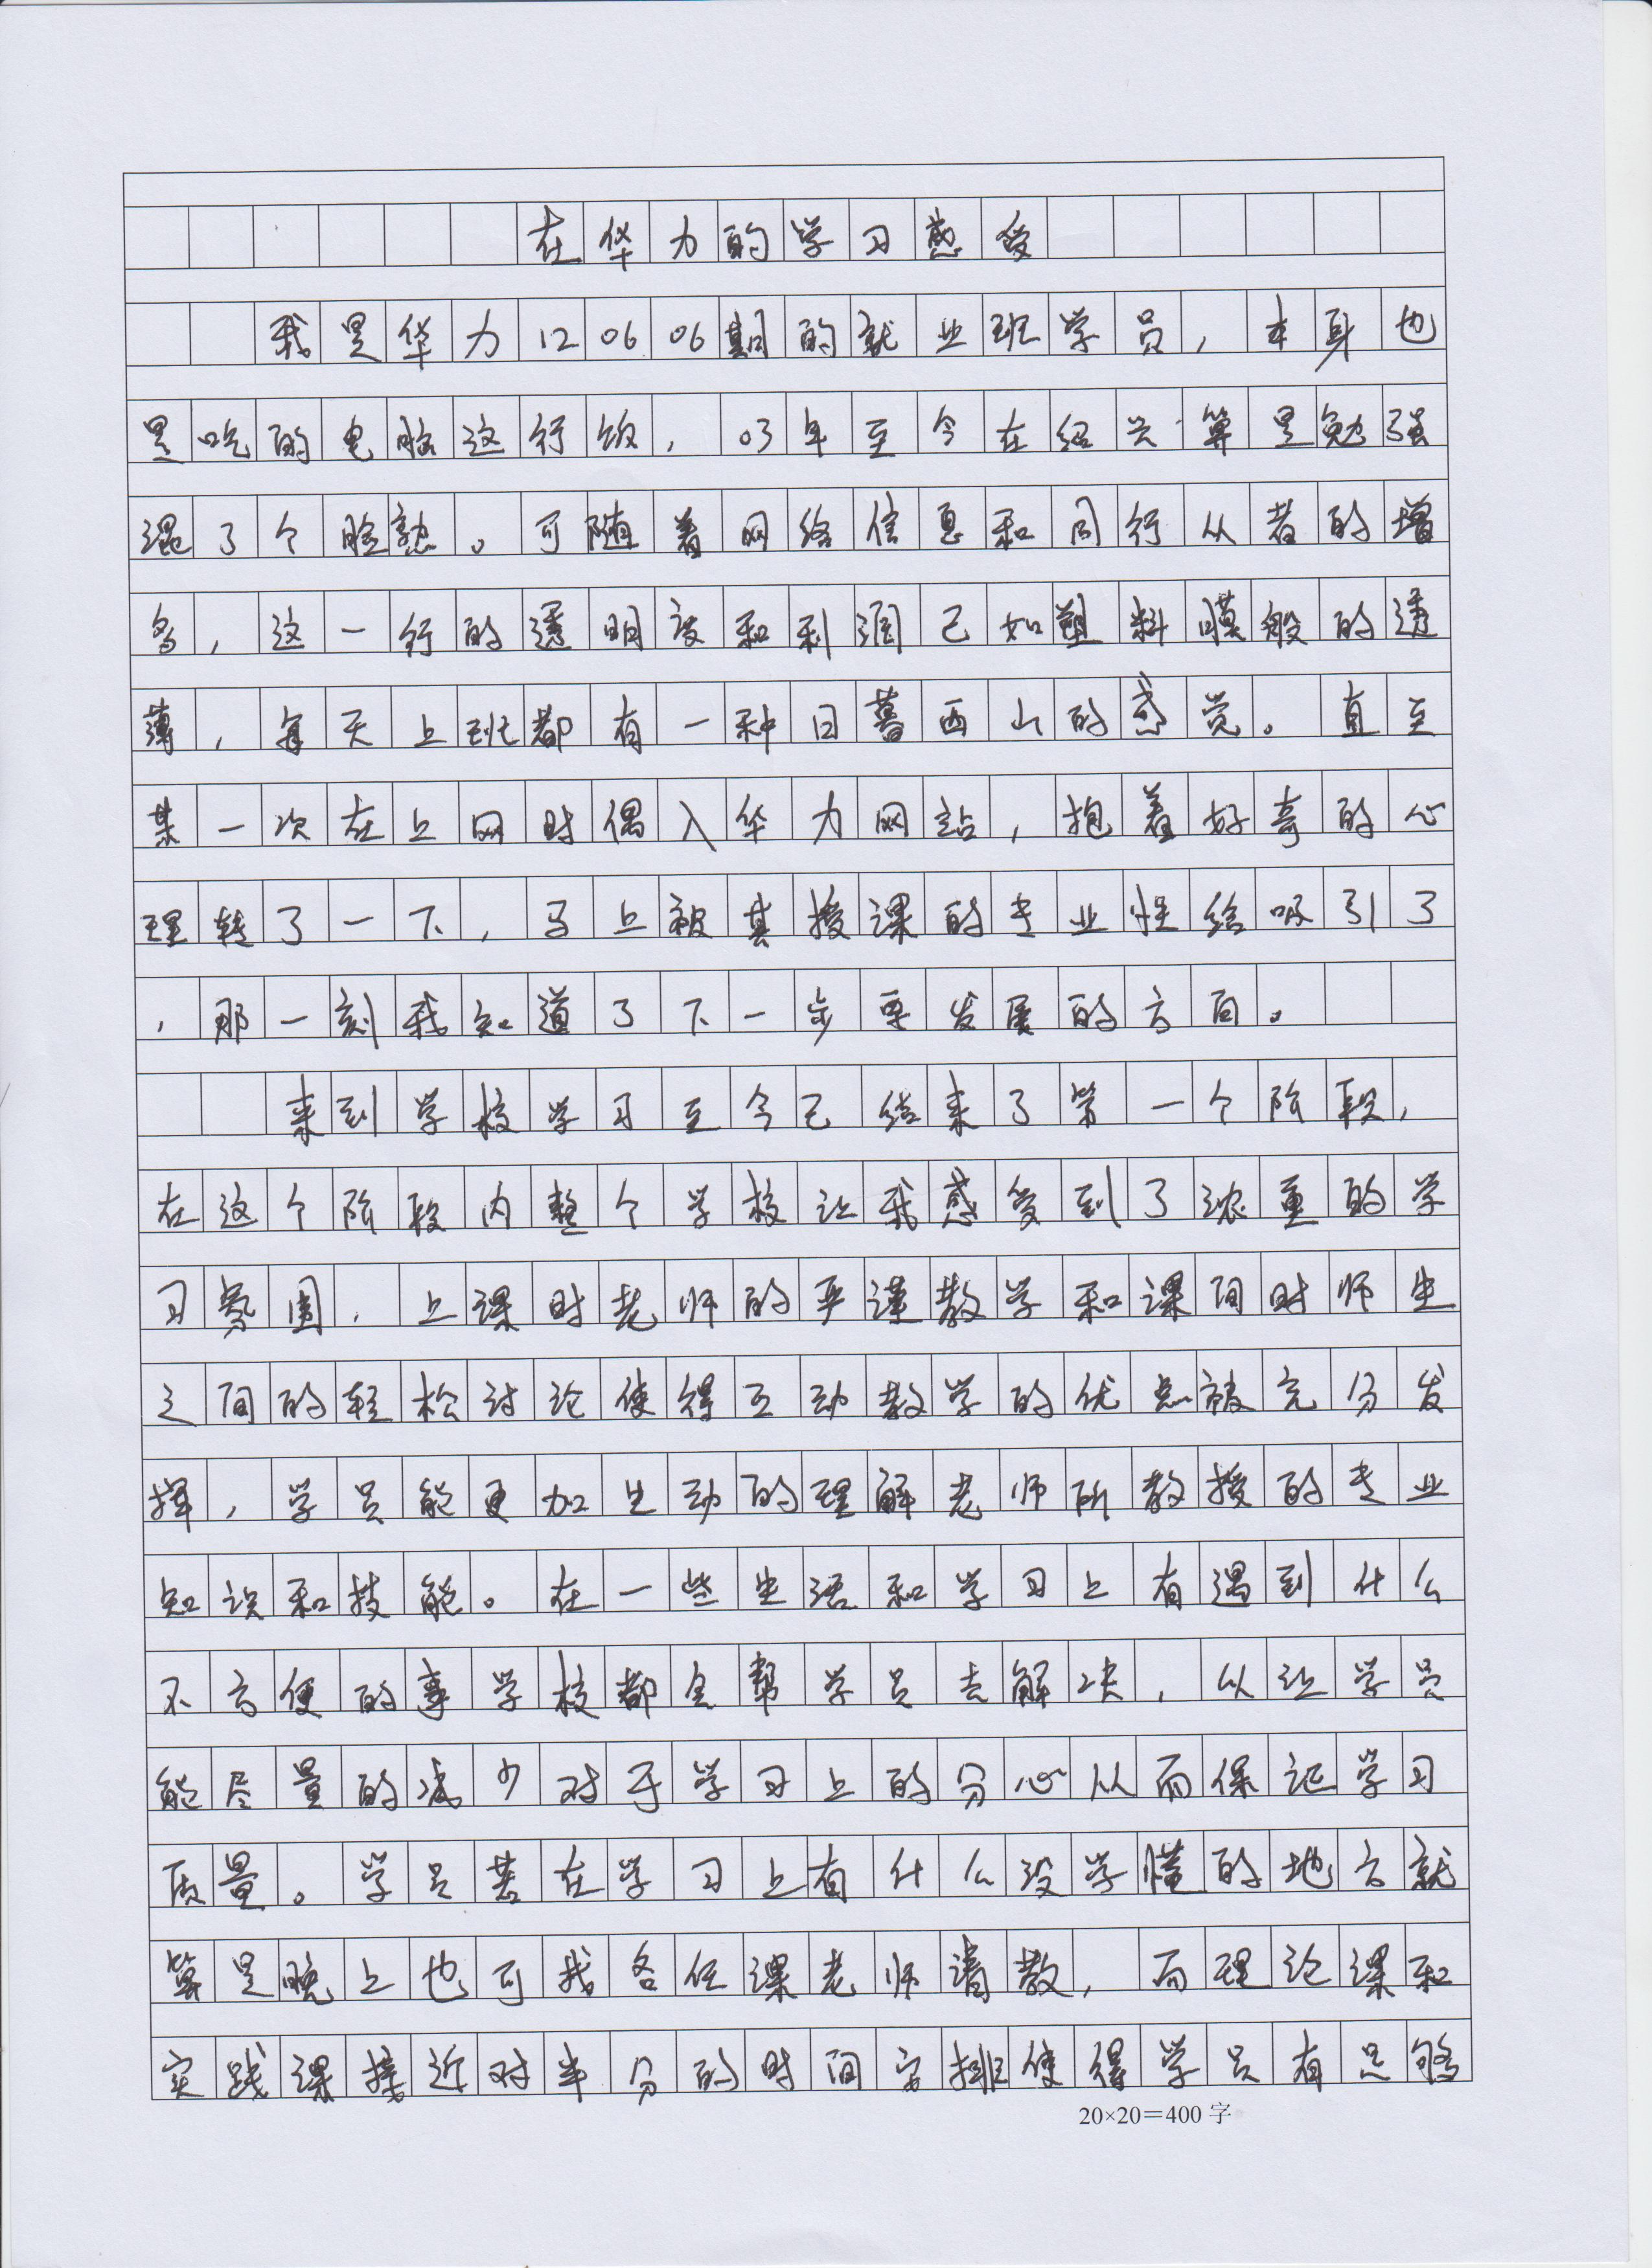 在华力的学习感受
我是华力120606期的就业班学员，本身也
是吃的电脑这行饭，03年至今在绍兴算是勉强
混了个脸熟。可随着网络信息和同行从者的增
多，这一行的透明度和利润已如塑料膜般的透
薄，每天上班都有一种日暮西山的感觉。直至
某一次在上网时偶入华力网站，抱着好奇的心
理转了一下，马上被其授课的专业性给吸引了
，那一刻我知道了下一步要发展的方向。
来到学校学习至今已结束了第一个阶段，
在这个阶段内整个学校让我感受到了浓重的学
习氛围，上课时老师的严谨教学和课间时师生
之间的轻松讨论使得互动教学的优点被充分发
挥，学员能更加生动的理解老师所教授的专业
知识和技能。在一些生活和学习上有遇到什么
不方便的事学校都会帮学员去解决，以让学员
能尽量的减少对于学习上的分心从而保证学习
质量。学员若在学习上有什么没学懂的地方就
算是晚上也可找各任课老师请教，而理论课和
实践课接近对半分的时间安排使得学员有足够
20×20=400字